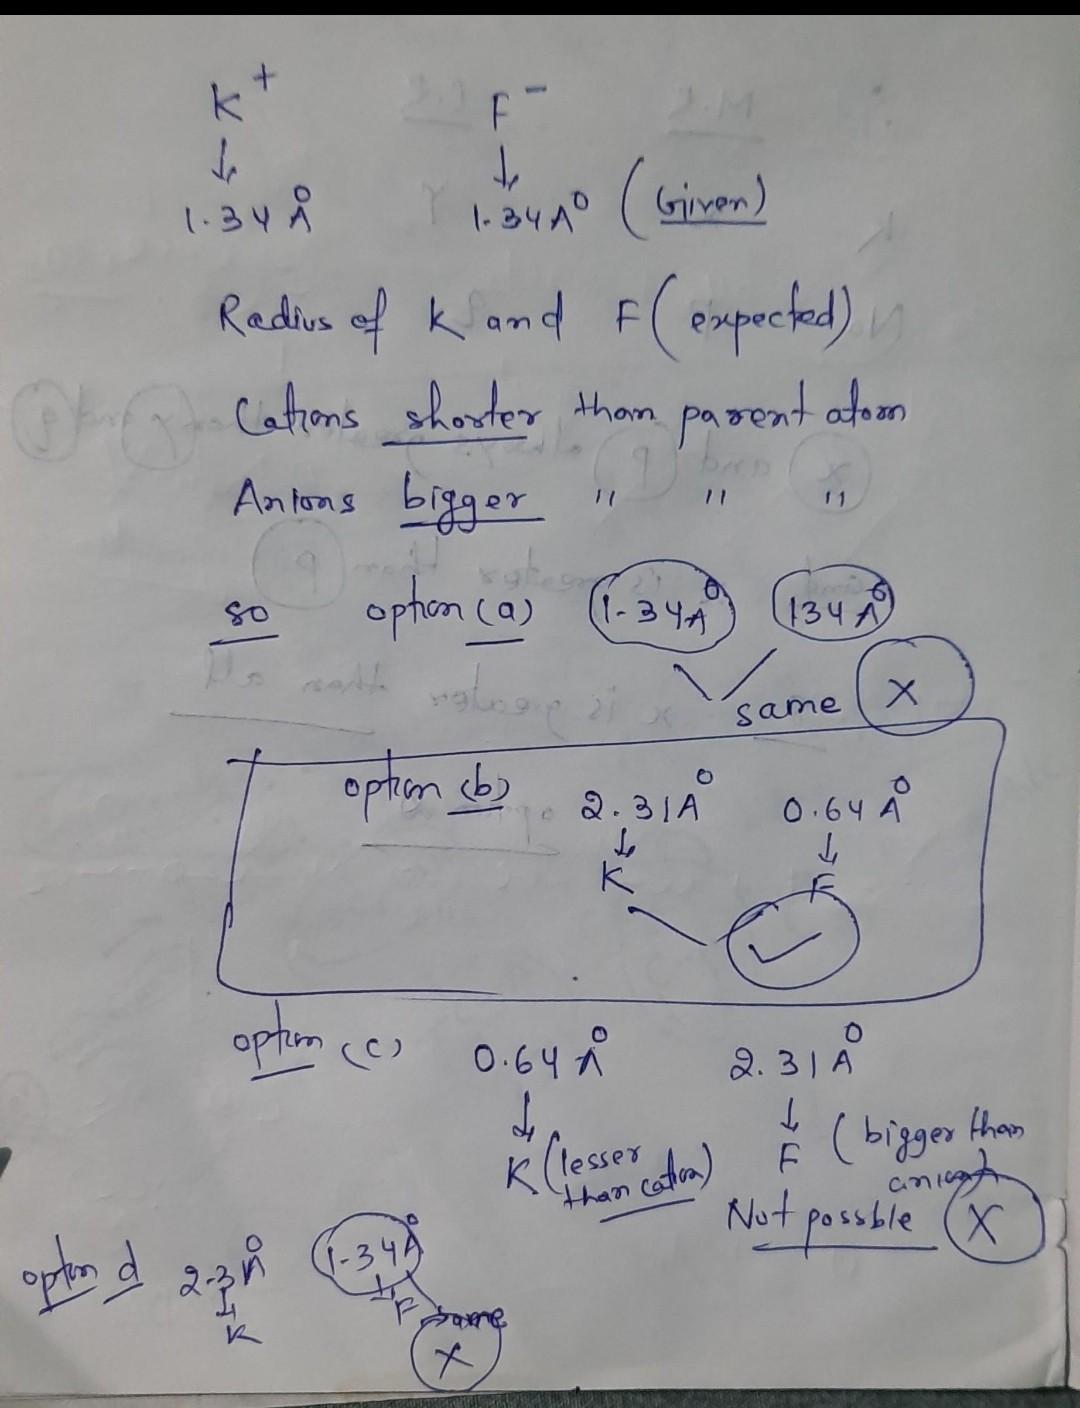 K+ F-
↓ ↓
1.34 Å 1.34 A° (Given)
Radius of K and F (expected)
Cations shorter than parent atom
Anions bigger " " "
so option (a) 1-34A° 134A°
same X
option (b) 2.31A° 0.64 A°
↓ ↓
K F
✓
option (c) 0.64 A° 2.31A°
↓ ↓
K (lesser than cation) F (bigger than anion)
Not possble X
option d 2-3A° 1-34A°
↓ ↓
K F same
X